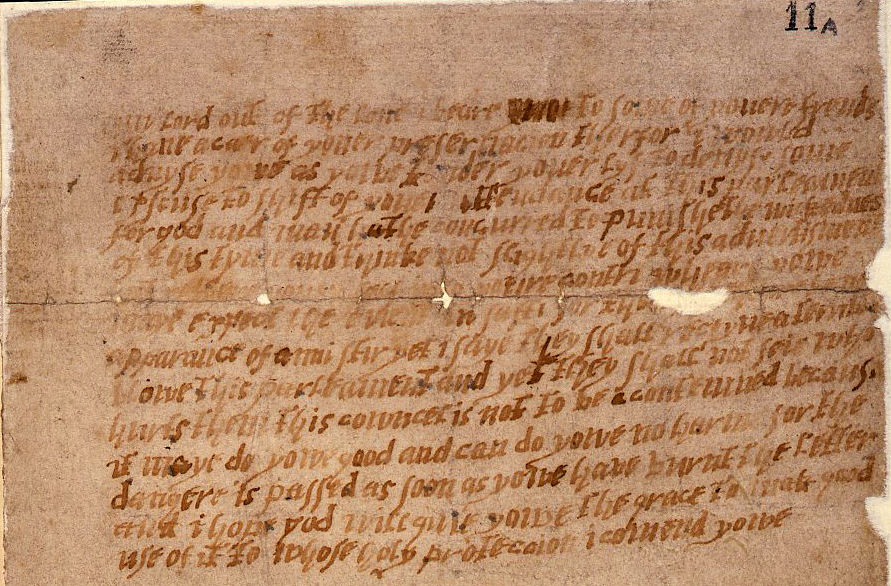 11A
my lord out of the love i beare to some of youere frends
i have a caer of youer preseruacion therfor i would
aduyse yowe as yowe tender youer lyf to deuyse some
excuse to shift of youer attendance at this parleament
for god and man hathe concurred to punishe the wickednes
of this tyme and thinke not slightlye of this aduertisment
youre contri wheare yowe
maye expect the euent in safti for thowghe
apparance of anni stir yet i saye they shall receyue a terribel
blowe this parleament and yet they shall not seie who
hurts them this cowncel is not to be acontemned becaus
it maye do yowe good and can do yowe no harme for the
dangere is passed as soon as yowe have burnt the letter
and i hope god will giue yowe the grace to mak good
use of it to whose holy proteccion i comend yowe